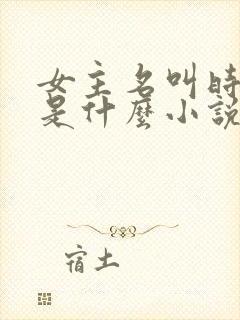 女主名叫時
是什麼小說
宿土